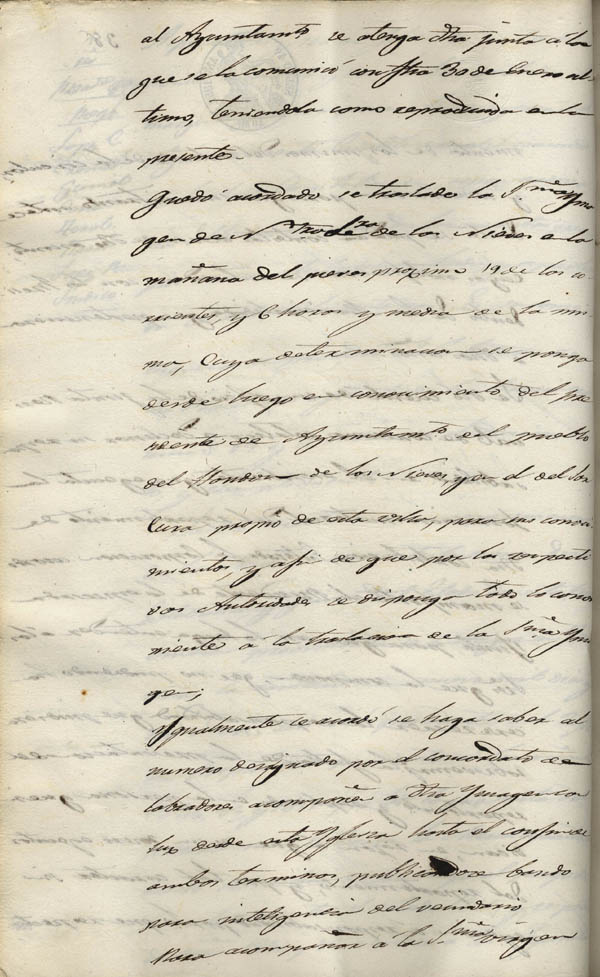 al Ayuntamto se atenga dha junta á lo
que se la comunicó con fha 30 de Enero ul-
timo, teniendola como reproducida en la
presente.
Quedó acordado se traslade la Sma Yma-
gen de Ntra Sra de las Nieves en la
mañana del jueves proximo 19 de los co-
rrientes, y 6 horas y media de la mis-
ma, cuya determinacion se ponga
desde luego en conocimiento del pre-
sidente de Ayuntamto del pueblo
del Hondon de las Nieves, y en el del Sor
Cura propio de esta villa, para sus conoci-
mientos, y afin de que por las respecti-
vas Autoridades se disponga todo lo conve-
niente á la traslacion de la Sma Yma-
gen;
Ygualmente se acordó se haga saber al
numero designado por el concordato de
labradores acompañen a dha Ymagen con
luz desde esta Yglesia hasta el confin de
ambos terminos, publicandose bando
para inteligencia del vecindario
para acompañar á la Sma Virgen